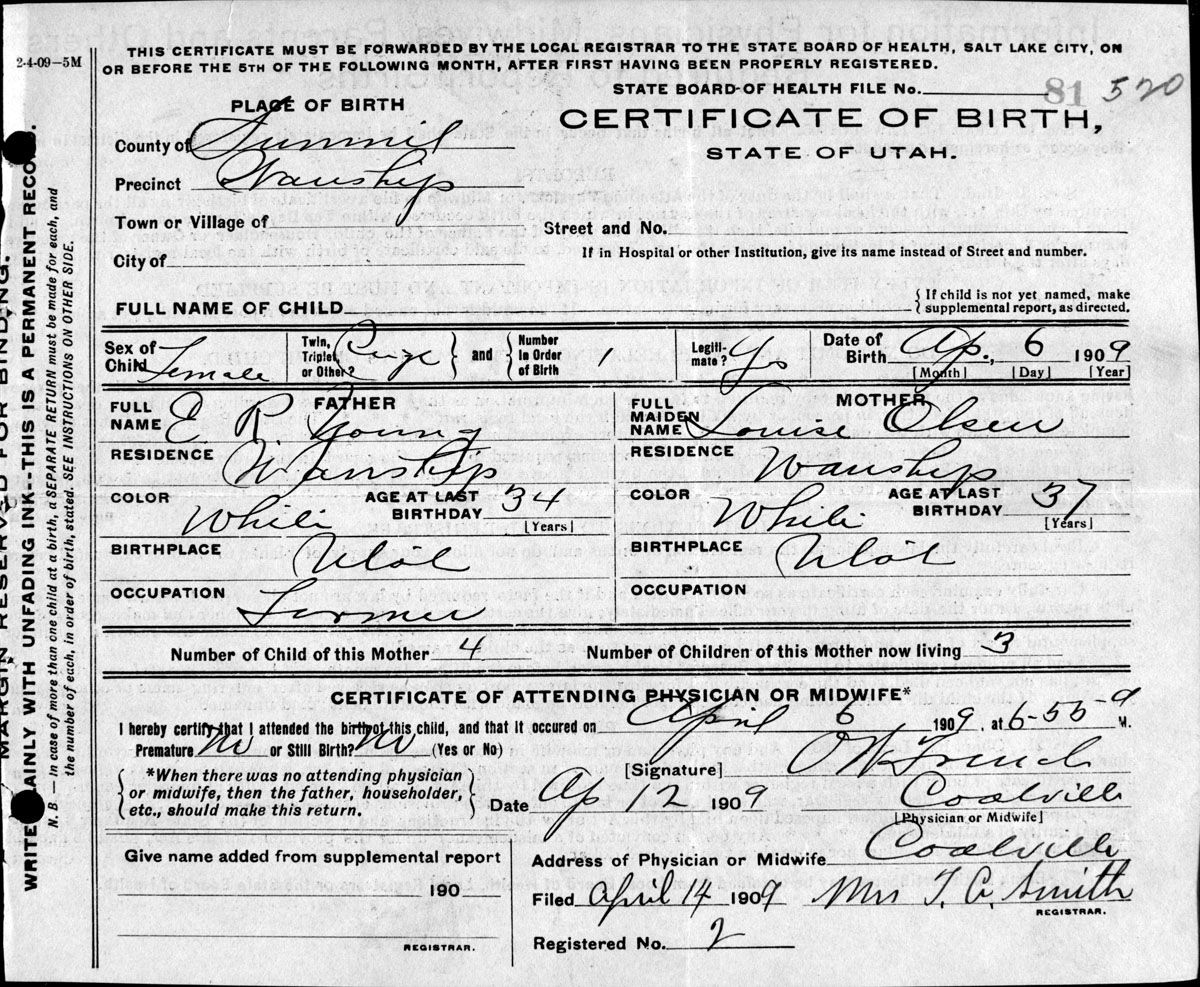 2-4-09-5M
THIS CERTIFICATE MUST BE FORWARDED BY THE LOCAL REGISTRAR TO THE STATE BOARD OF HEALTH, SALT LAKE CITY, ON
OR BEFORE THE 5TH OF THE FOLLOWING MONTH, AFTER FIRST HAVING BEEN PROPERLY REGISTERED.
STATE BOARD OF HEALTH FILE No. 81 520
PLACE OF BIRTH
CERTIFICATE OF BIRTH,
STATE OF UTAH.
County of Summit
Precinct Wanship
Town or Village of
Street and No.
City of
If in Hospital or other Institution, give its name instead of Street and number.
FULL NAME OF CHILD
{ If child is not yet named, make
supplemental report, as directed.
Sex of Child Female
Twin, Triplet, or Other?
and Number in Order of Birth
Legitimate? Yes
Date of Birth Ap. 6 1909
[Month] [Day] [Year]
FATHER
FULL NAME E. R. Young
RESIDENCE Wanship
COLOR White AGE AT LAST BIRTHDAY 34 [Years]
BIRTHPLACE Utah
OCCUPATION Farmer
MOTHER
FULL MAIDEN NAME Louise Olsen
RESIDENCE Wanship
COLOR White AGE AT LAST BIRTHDAY 37 [Years]
BIRTHPLACE Utah
OCCUPATION
Number of Child of this Mother 4 Number of Children of this Mother now living 3
CERTIFICATE OF ATTENDING PHYSICIAN OR MIDWIFE*
I hereby certify that I attended the birth of this child, and that it occured on April 6 1909, at 6-55 M.
Premature No or Still Birth? No (Yes or No)
*When there was no attending physician
or midwife, then the father, householder,
etc., should make this return.
[Signature]
Date Ap 12 1909 Coalville
[Physician or Midwife]
Give name added from supplemental report
190
REGISTRAR.
Address of Physician or Midwife Coalville
Filed April 14 1909 Mrs T. A. Smith
REGISTRAR.
Registered No. 2
MARGIN RESERVED FOR BINDING.
WRITE PLAINLY WITH UNFADING INK--THIS IS A PERMANENT RECORD.
N. B. — In case of more than one child at a birth, a SEPARATE RETURN must be made for each, and
the number of each, in order of birth, stated. SEE INSTRUCTIONS ON OTHER SIDE.